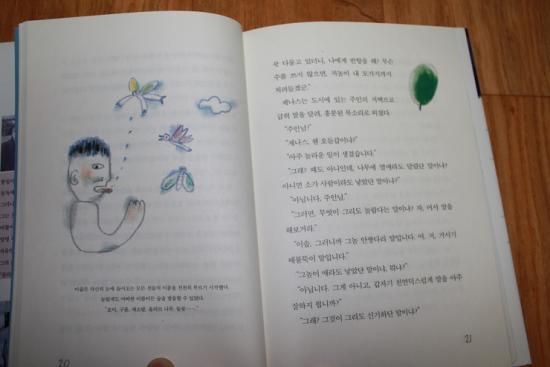 이솝은 자신의 눈에 들어오는 모든 것들의 이름을 천천히 부르기 시작했다.
놀랍게도 어떠한 이름이든 술술 발음할 수 있었다.
20
왕 다듬고 있더니, 나에게 반항을 해? 무슨
수를 쓰지 않으면, 저놈이 내 모가지까지
제나스는 도시에 있는 주인의 저택으로
급히 말을 달려, 흥분된 목소리로 외쳤다.
"주인님!"
"제나스, 웬 호들갑이냐?"
"아주 놀라운 일이 생겼습니다."
"그래? 때도 아니인데, 나무에 열매라도 달렸단 말이냐?
아니면 소가 사람이라도 낳았단 말이냐?"
"아닙니다, 주인님."
"그러면, 무엇이 그리도 놀랍다는 말이냐? 자, 어서 말을
해보거라."
"이솝, 그러니까 그놈 안 말입니다. 어, 저, 거시기
"그놈이 애라도 낳았단 말이냐, 뭐냐?"
"아닙니다. 그게 아니고, 갑자기 천연덕스럽게 말을 아주
잘하지 뭡니까?"
"그래? 그것이 그리도 신기하단 말이냐?
21